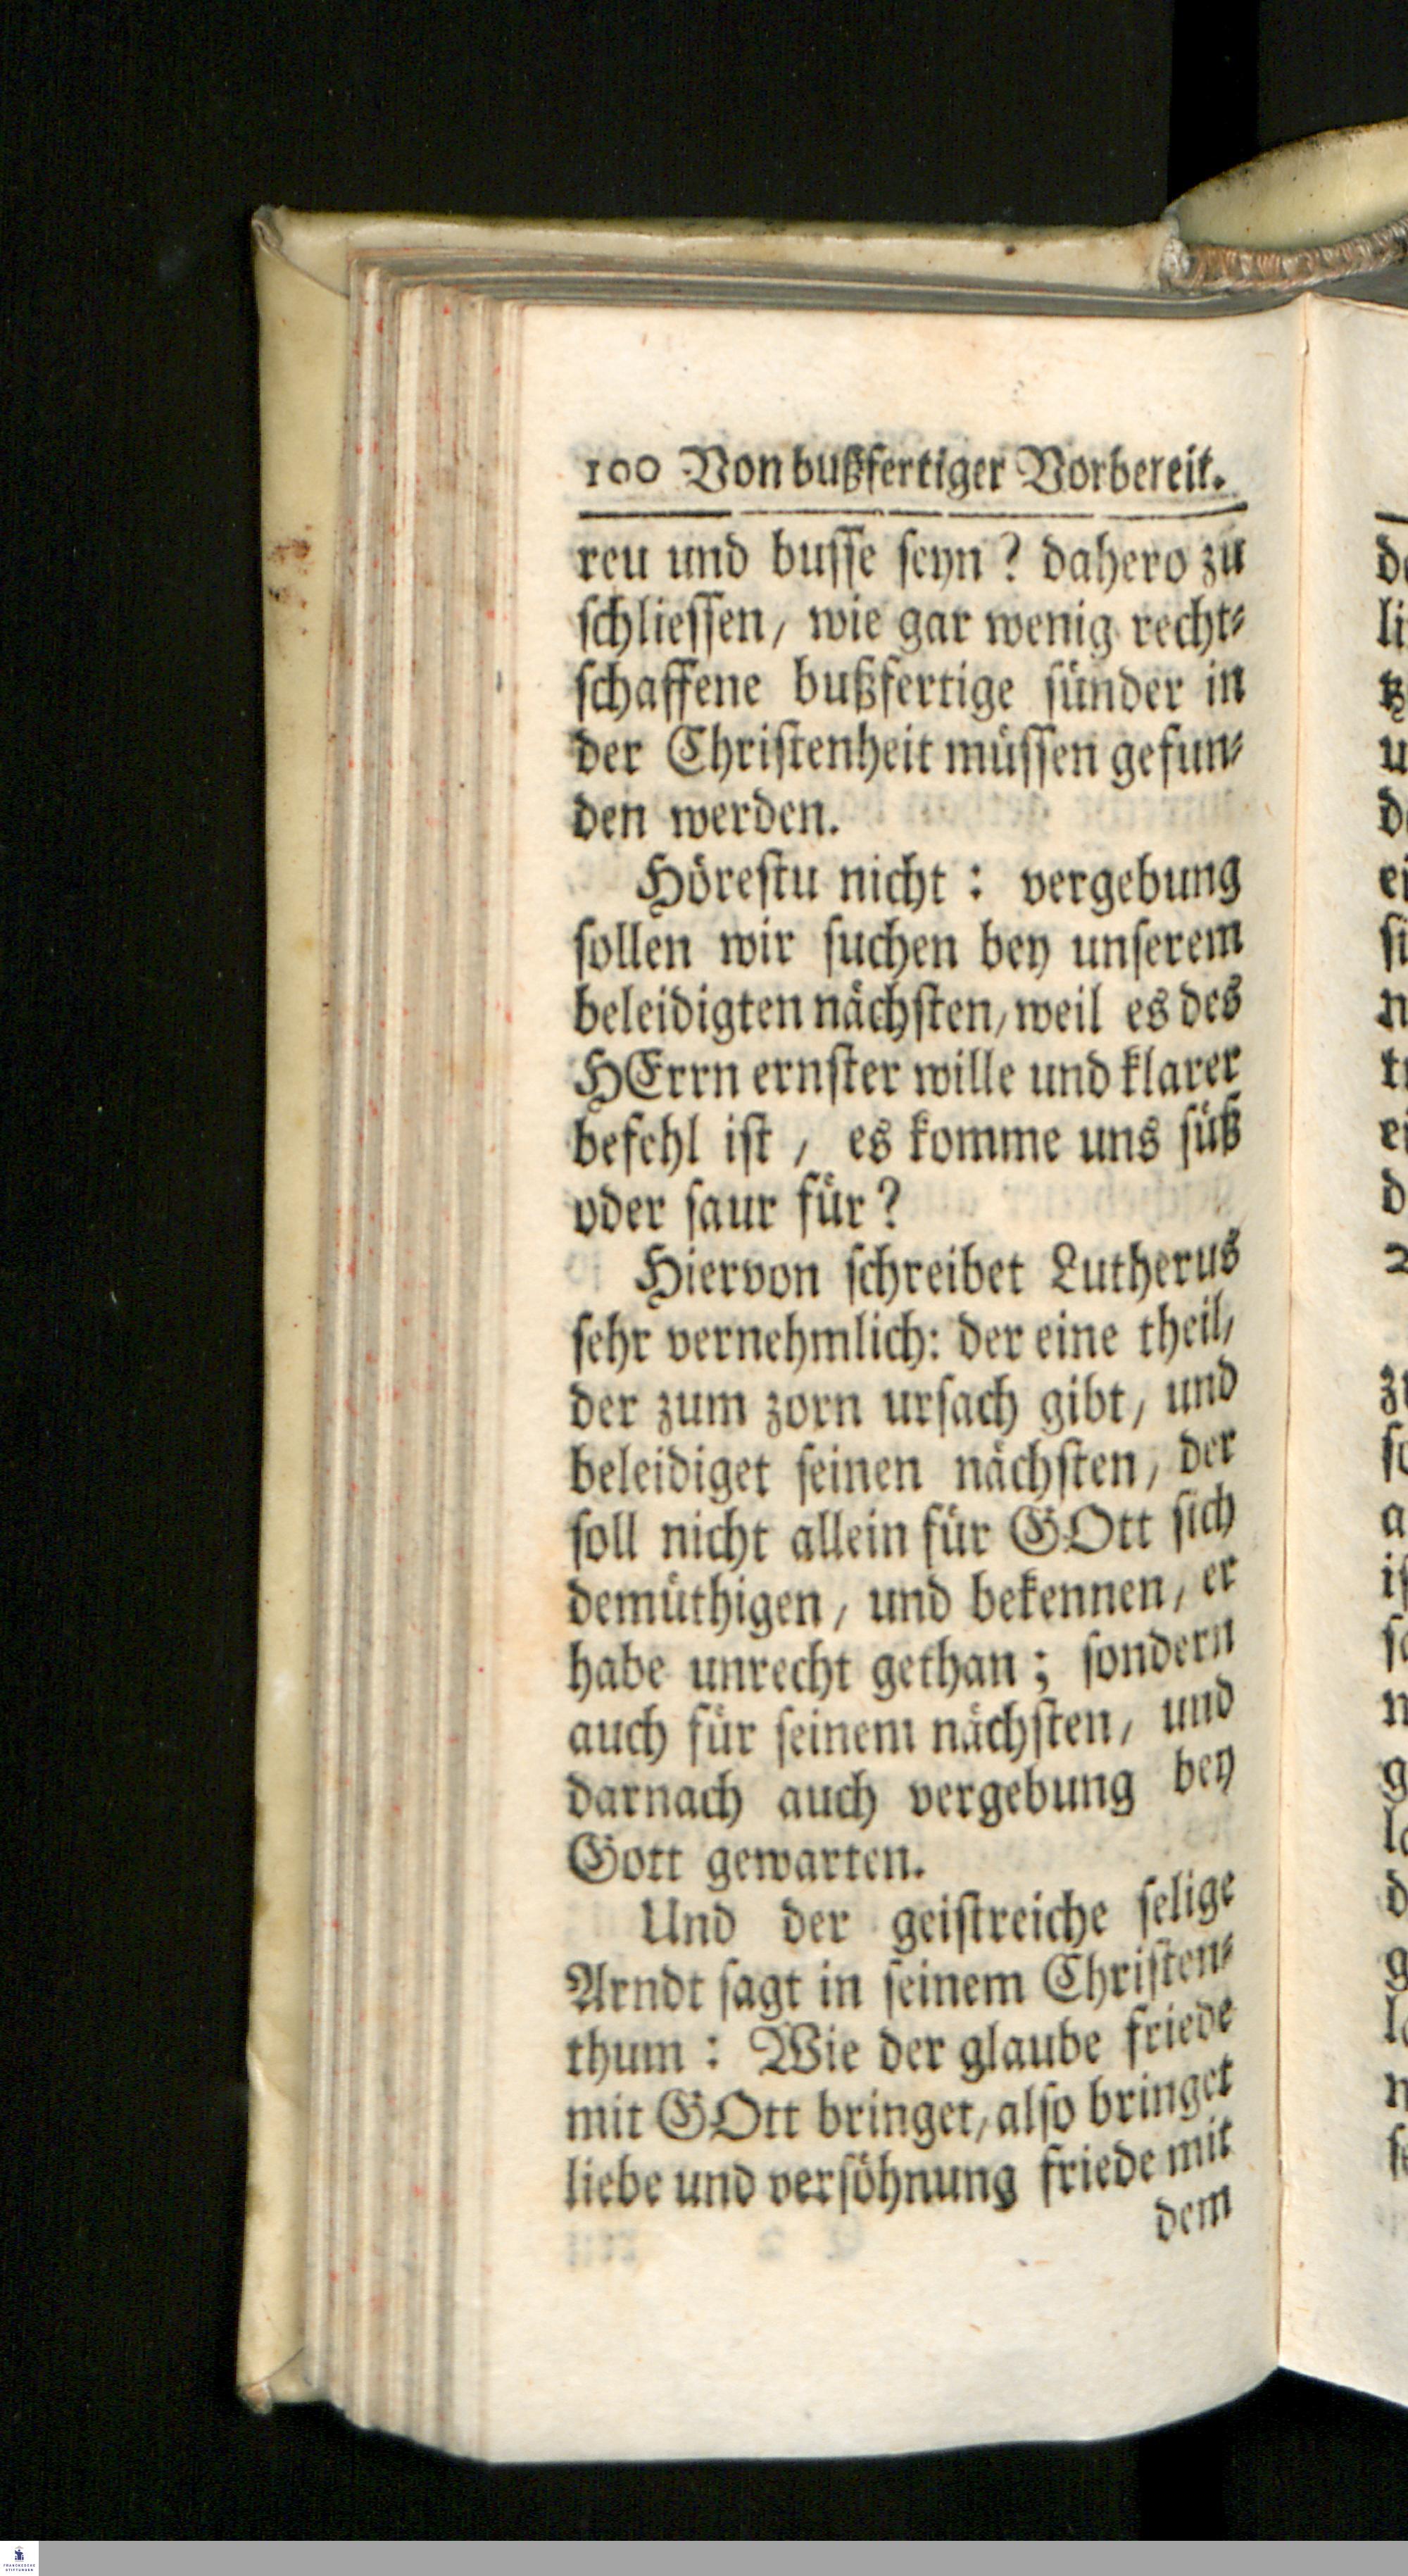 100 Von bußfertiger Vorbereit.
reu und busse seyn? dahero zu
schliessen, wie gar wenig recht⸗
schaffene bußfertige sünder in
der Christenheit müssen gefun⸗
den werden.
Hörestu nicht: vergebung
sollen wir suchen bey unserem
beleidigten nächsten, weil es des
HErrn ernster wille und klarer
befehl ist, es komme uns süß
oder saur für?
Hiervon schreibet Lutherus
sehr vernehmlich: der eine theil,
der zum zorn ursach gibt, und
beleidiget seinen nächsten, der
soll nicht allein für GOtt sich
demüthigen, und bekennen, er
habe unrecht gethan; sondern
auch für seinem nächsten, und
darnach auch vergebung bey
Gott gewarten.
Und der geistreiche selige
Arndt sagt in seinem Christen⸗
thum: Wie der glaube friede
mit GOtt bringet, also bringet
liebe und versöhnung friede mit
dem
FRANCKESCHE
STIFTUNGEN